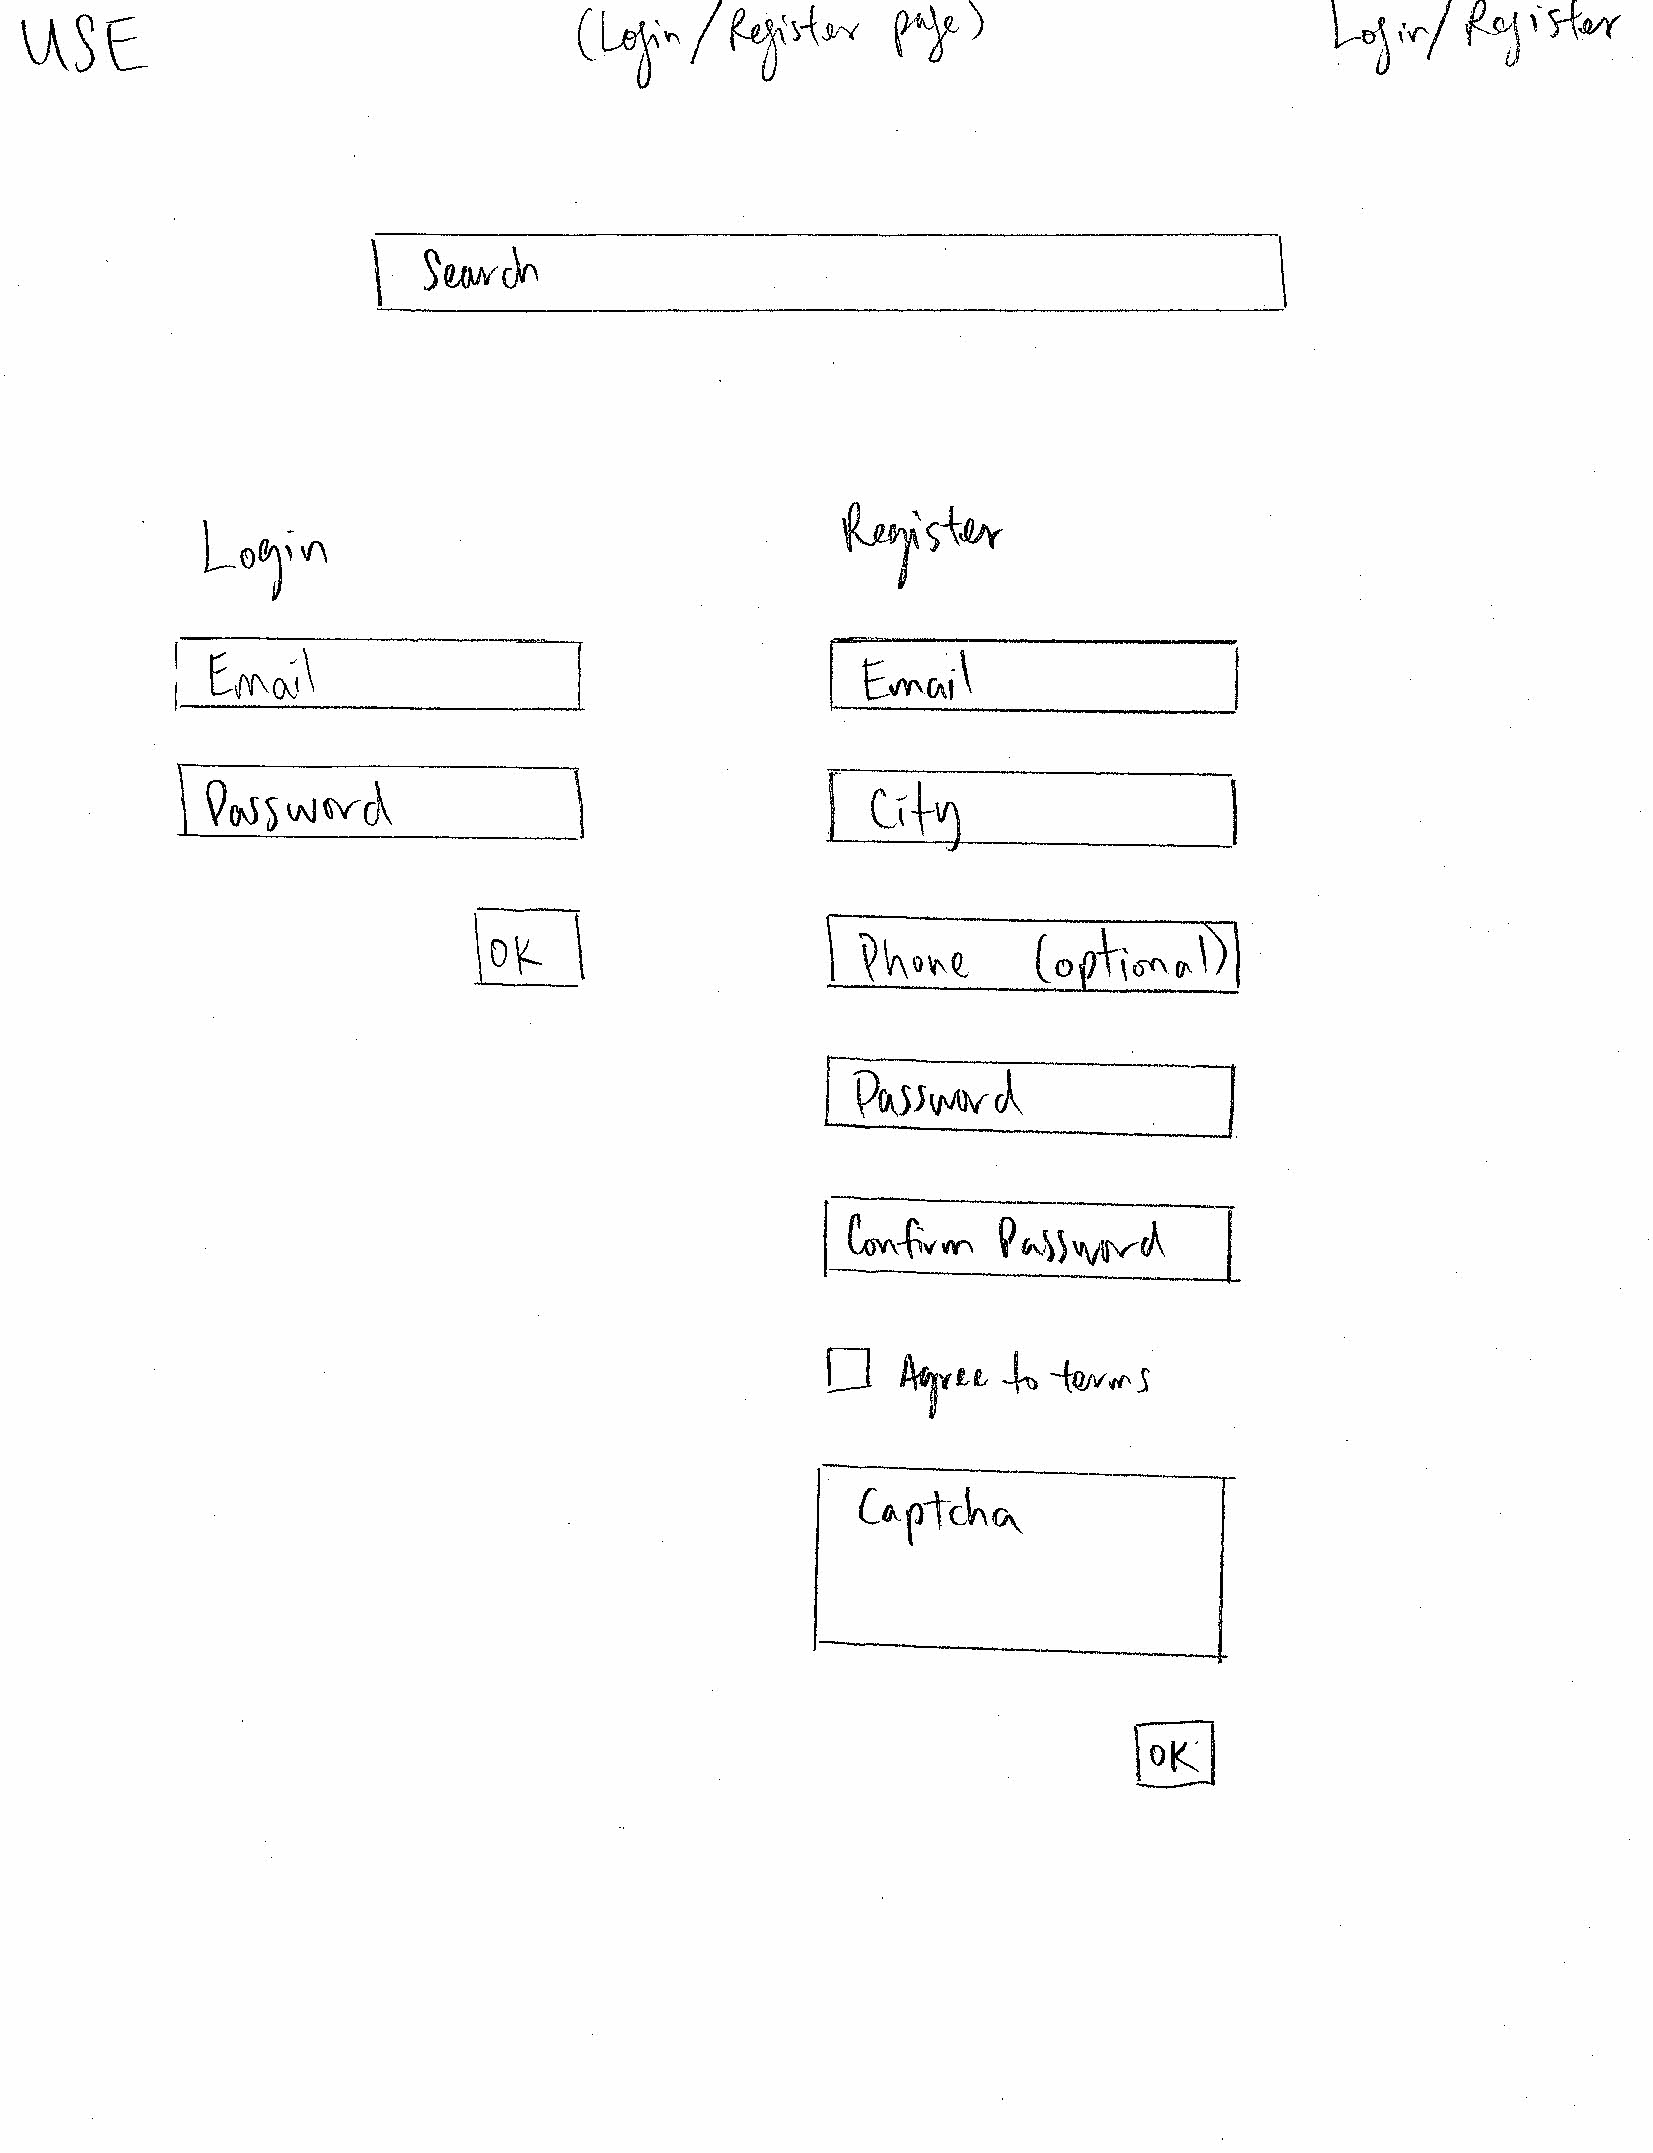 USE (Login/Register page) Login/Register
Search
Login
Email
Password
OK
Register
Email
City
Phone (optional)
Password
Confirm Password
Agree to terms
Captcha
OK